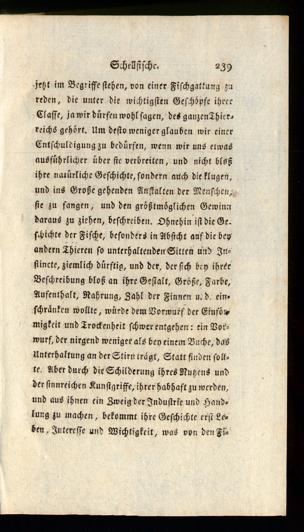 Schellfische. 239
jetzt im Begriffe stehen, von einer Fischgattung zu
reden, die unter die wichtigsten Geschöpfe ihrer
Classe, ja wir dürfen wohl sagen, des ganzen Thier-
reichs gehört. Um desto weniger glauben wir einer
Entschuldigung zu bedürfen, wenn wir uns etwas
ausführlicher über sie verbreiten, und nicht bloß
ihre natürliche Geschichte, sondern auch die klugen,
und ins Große gehenden Anstalten der Menschen,
sie zu fangen, und den größtmöglichen Gewinn
daraus zu ziehen, beschreiben. Ohnehin ist die Ge-
schichte der Fische, besonders in Absicht auf die bey
andern Thieren so unterhaltenden Sitten und In-
stincte, ziemlich dürftig, und der, der sich bey ihrer
Beschreibung bloß an ihre Gestalt, Größe, Farbe,
Aufenthalt, Nahrung, Zahl der Finnen u. d. ein-
schränken wollte, würde dem Vorwurf der Einför-
migkeit und Trockenheit schwer entgehen: ein Vor-
wurf, der nirgend weniger als bey einem Buche, das
Unterhaltung an der Stirn trägt, Statt finden soll-
te. Aber durch die Schilderung ihres Nutzens und
der sinnreichen Kunstgriffe, ihrer habhaft zu werden,
und aus ihnen ein Zweig der Industrie und Hand-
lung zu machen, bekommt ihre Geschichte erst Le-
ben, Interesse und Wichtigkeit, was von den Fi-